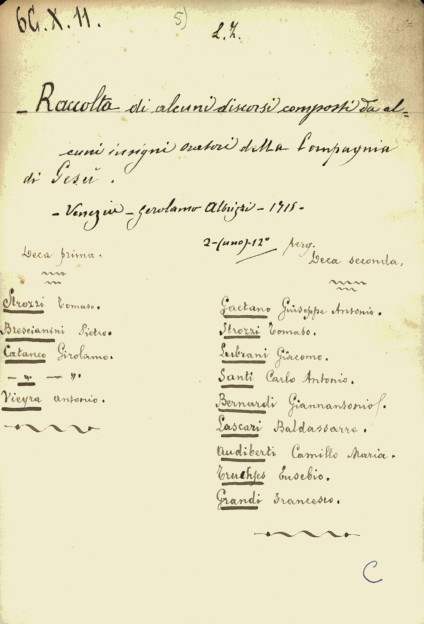 6C.X.11.
5)
L.Z.
- Raccolta di alcuni discorsi composti da al=
cuni insigni oratori della Compagnia
di Gesù.
- Venezia - Gerolamo Albrizzi - 1715 -
2-(uno)-12° perg.
Deca prima.
Strozzi Tomaso.
Brescianini Pietro.
Cataneo Girolamo.
— " — ".
Vieyra Antonio.
Deca seconda.
Gaetano Giuseppe Antonio.
Strozzi Tomaso.
Lubrani Giacomo.
Santi Carlo Antonio.
Bernardi Giannantonio.
Lascari Baldassarro.
Audiberti Camillo Maria.
Eusebio.
Grandi Francesco.
C